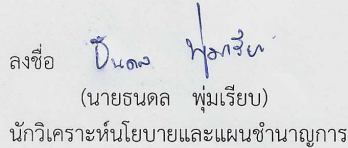 ลงชื่อ ธนดล พุ่มเรียบ
(นายธนดล พุ่มเรียบ)
นักวิเคราะห์นโยบายและแผนชำนาญการ